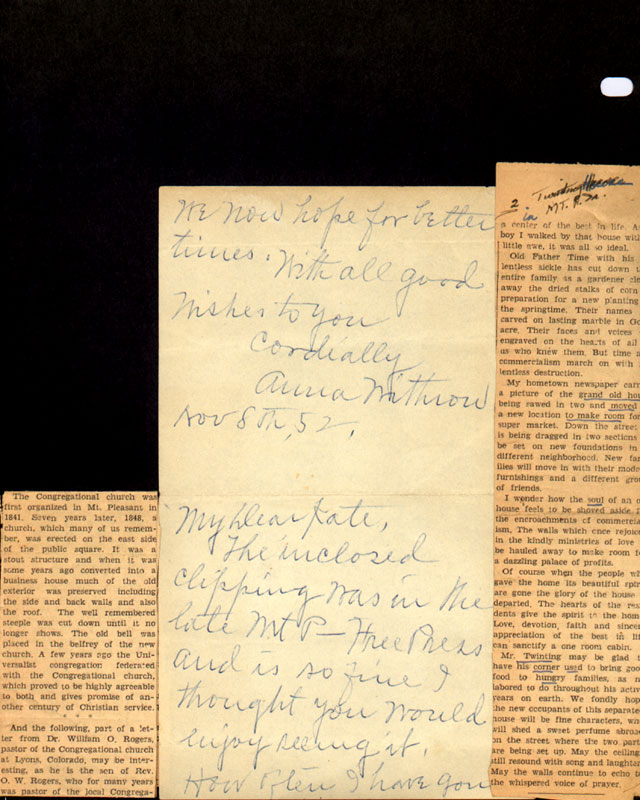 We now hope for better
times. With all good
Wishes to you
Cordially
Anna Withrow
Nov 8th, 52.
My Dear Kate,
The inclosed
clipping was in the
late Mt P— Free Press
and is so fine I
thought you would
enjoy seeing it.
How often I have you
The Congregational church was
first organized in Mt. Pleasant in
1841. Seven years later, 1848, a
church, which many of us remem-
ber, was erected on the east side
of the public square. It was a
stout structure and when it was
some years ago converted into a
business house much of the old
exterior was preserved including
the side and back walls and also
the roof. The well remembered
steeple was cut down until it no
longer shows. The old bell was
placed in the belfrey of the new
church. A few years ago the Uni-
versalist congregation federated
with the Congregational church,
which proved to be highly agreeable
to both and gives promise of an-
other century of Christian service.
* * *
And the following, part of a let-
ter from Dr. William O. Rogers,
pastor of the Congregational church
at Lyons, Colorado, may be inter-
esting, as he is the son of Rev.
O. W. Rogers, who for many years
was pastor of the local Congrega-
2 Twinting
in Mt. P.
a center of the best in life. As
boy I walked by that house with
little awe, it was all so ideal.
Old Father Time with his
lentless sickle has cut down t
entire family as a gardener cle
away the dried stalks of corn
preparation for a new planting
the springtime. Their names
carved on lasting marble in Go
acre. Their faces and voices
engraved on the hearts of all
us who knew them. But time a
commercialism march on with
lentless destruction.
My hometown newspaper carr
a picture of the grand old hou
being sawed in two and moved
a new location to make room fo
super market. Down the street
is being dragged in two sections
be set on new foundations in
different neighborhood. New fam
ilies will move in with their mode
furnishings and a different grou
of friends.
I wonder how the soul of an o
house feels to be shoved aside f
the encroachments of commerci
ism, The walls which once rejoice
in the kindly ministries of love
be hauled away to make room f
a dazzling palace of profits.
Of course when the people wh
gave the home its beautiful spir
are gone the glory of the house
departed. The hearts of the res
dents give the spirit to the hom
Love, devotion, faith and sincer
appreciation of the best in li
can sanctify a one room cabin.
Mr. Twinting may be glad t
have his corner used to bring goo
food to hungry families, as
labored to do throughout his activ
years on earth. We fondly hop
the new occupants of this separate
house will be fine characters, wh
will shed a sweet perfume abroa
on the street where the two part
are being set up. May the ceiling
still resound with song and laughter
May the walls continue to echo t
the whispered voice of prayer.